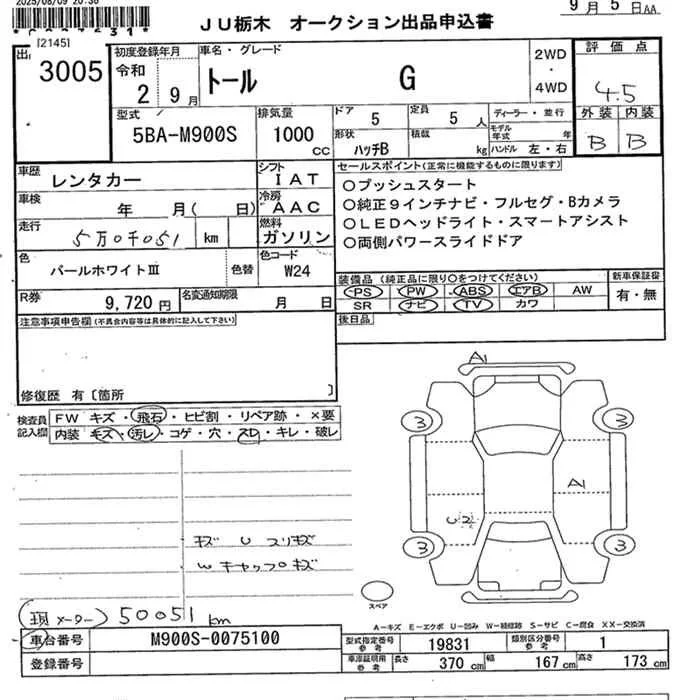 2025/08/09 20:36
9月5日AA
JU栃木 オークション出品申込書
[2145]
出 3005
初度登録年月 令和 2 9月
車名・グレード トール G
2WD・4WD
評価点 4.5
外装 B 内装 B
型式 5BA-M900S
排気量 1000 cc
ドア 5 定員 5人
形状 ハッチB 積載 kg
ディーラー・並行
モデル年式 年
ハンドル 左・右
車歴 レンタカー
シフト IAT
車検 年 月( 日)
冷房 AAC
走行 5万0千051 km
燃料 ガソリン
色 パールホワイトⅢ 色替
色コード W24
R券 9,720円
名変通知期限 月 日
セールスポイント(正常に機能するものに限ります)
○プッシュスタート
○純正9インチナビ・フルセグ・Bカメラ
○LEDヘッドライト・スマートアシスト
○両側パワースライドドア
装備品(純正品に限り○をつけてください)
PS PW ABS エアB AW
SR ナビ TV カワ
新車保証書 有・無
後日品
注意事項申告欄(不具合内容等は具体的に記入して下さい)
修復歴 有〔箇所 〕
検査員記入欄
FW キズ・飛石・ヒビ割・リペア跡・×要
内装 キズ・汚レ・コゲ・穴・スレ・キレ・破レ
キズ U スリキズ
W キャップキズ
A1
3 3
A1
U2
3 3
スペア
A-キズ E-エクボ U-凹み W-補修跡 S-サビ C-腐食 XX-交換済
(現メーター) 50051 km
車台番号 M900S-0075100
登録番号
型式指定番号 参考 19831
類別区分番号 参考 1
車庫証明用 参考 長さ 370 cm 幅 167 cm 高さ 173 cm